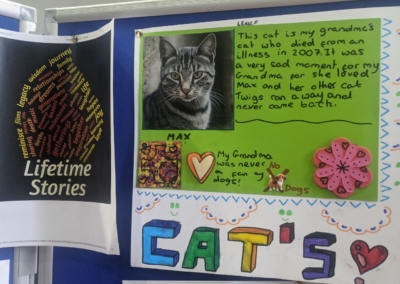 This cat is my grandma's
cat who died from an
illness in 2007. It was
a very sad moment for my
Grandma for she loved
Max and her other cat
Twigs ran away and
never came back.
MAX
My Grandma
was never
a fan of
dogs!
No
Dogs
CAT'S
journey
wisdom
legacy
film
reminisce
life
Lifetime
Stories